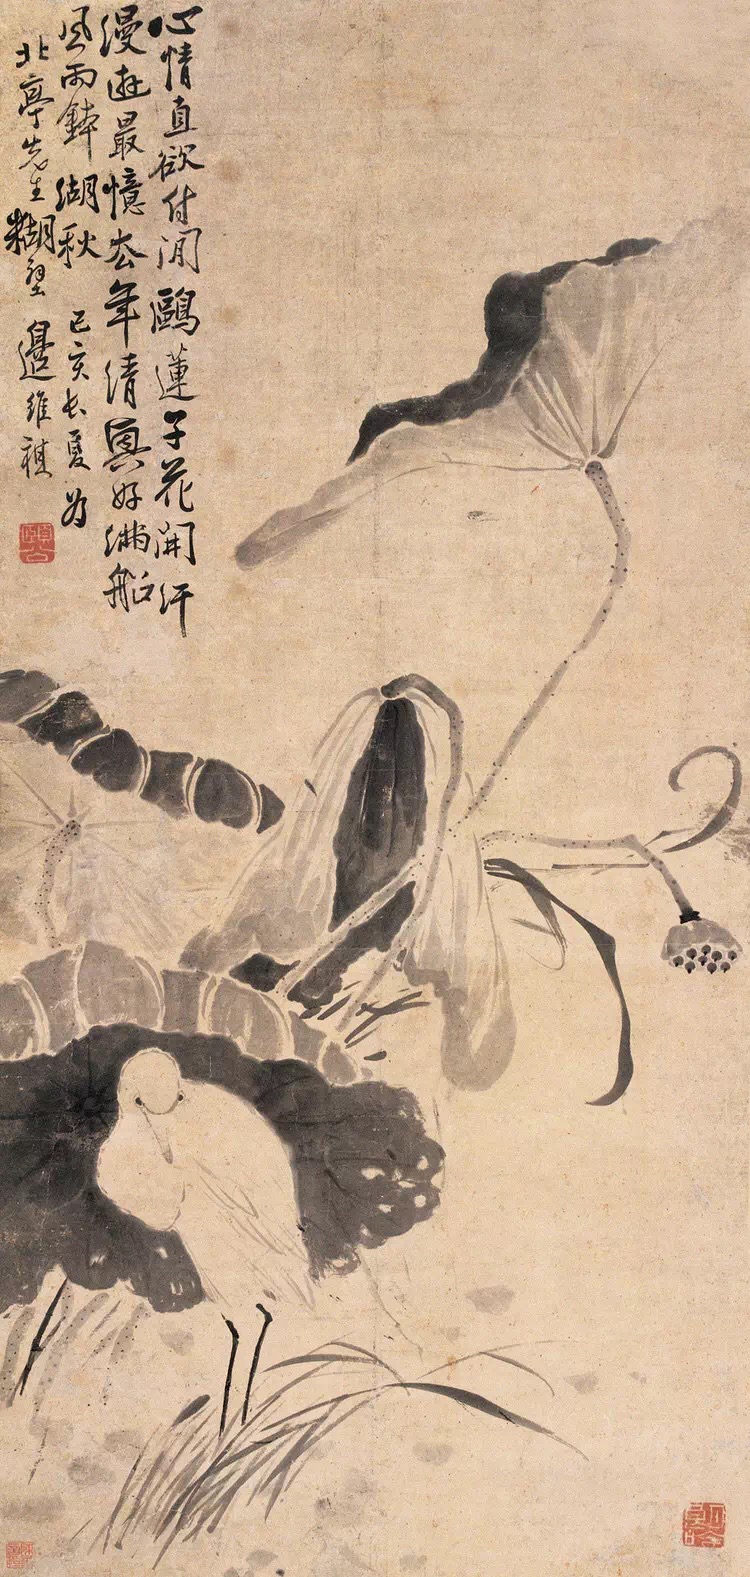 心情直欲付閒鷗蓮子花開汗
漫遊最憶去年清興好滿船
風雨鉢湖秋 己亥長夏為
北亭先生糊壁 邊維祺
頤公